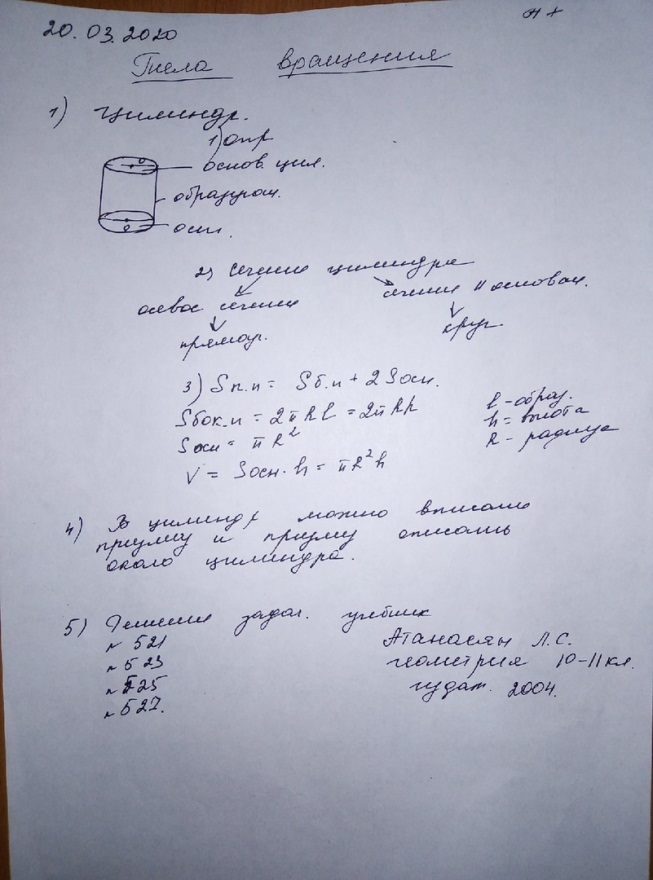 20.03.2020
Тела вращения
1) Цилиндр.
1) опр
основ. цил.
образующ.
осн.
2) Сечение цилиндра
осевое сечение
сечение || основан.
прямоуг.
круг.
3) Sп.п = Sб.п + 2Sосн.
Sбок.п = 2πRl = 2πRh
Sосн = πR²
V = Sосн·h = πR²h
l - образ.
h = высота
R - радиус
4) В цилиндр можно вписать
призму и призму описать
около цилиндра.
5) Решение задач. учебник
№ 521
№ 523
№ 525
№ 527.
Атанасян Л.С.
геометрия 10-11 кл.
издат. 2004.